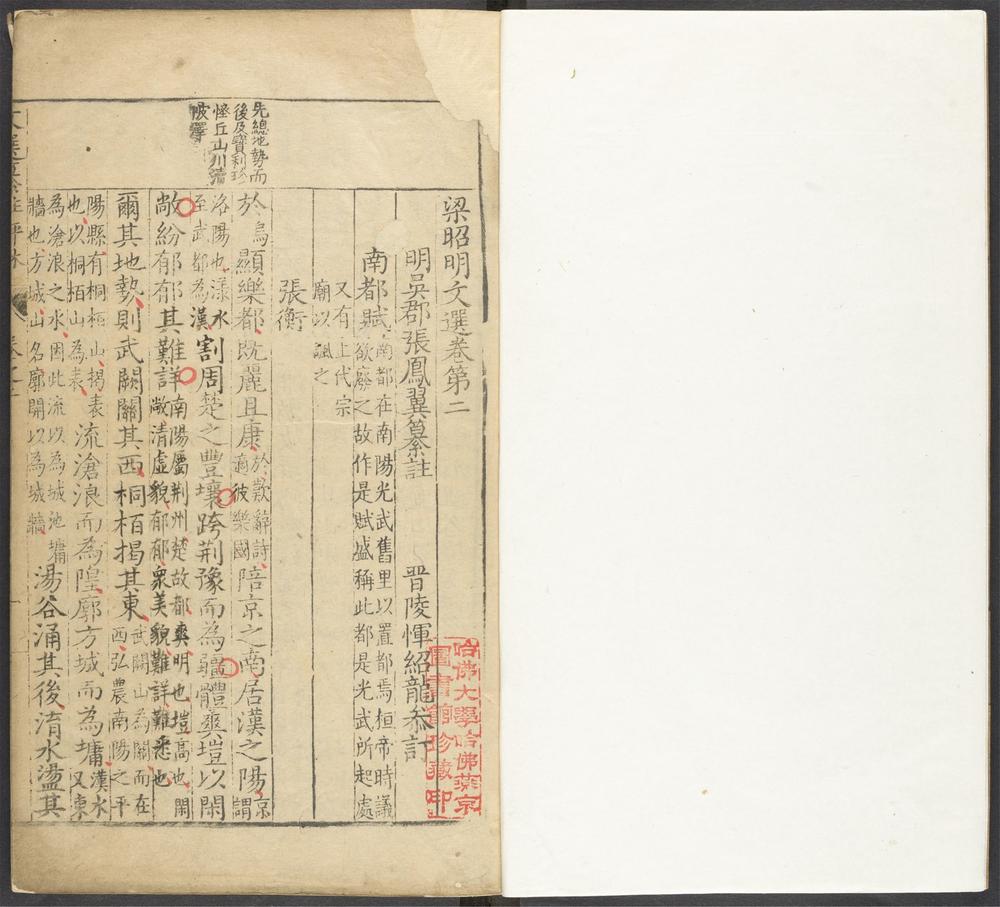 梁昭明文選卷第二
明吳郡張鳳翼纂註
晋陵惲紹龍叅訂
南都賦
南都在南陽光武舊里以置都焉桓帝時議
欲廢之故作是賦盛稱此都是光武所起處
又有上代宗
廟以諷之
張衡
於
烏
顯樂都既麗且康
於歎辭詩
適彼樂國
陪京之南居漢之陽
京
謂
洛陽也漾水
至武都為漢
割周楚之豐壤跨荆豫而為疆體爽塏以閑
敞紛郁郁其難詳
南陽屬荆州楚故都爽明也塏高也閑
敞清虛貌郁郁衆美貌難詳難悉也
爾其地勢則武闕關其西桐栢揭其東
武關山為關而在
西弘農南陽之平
陽縣有桐栢山揭表
也以桐栢山為表
流滄浪而為隍廓方城而為墉
漢水
又東
為滄浪之水因此流以為城池墉
牆也方城山名廓開以為城牆
湯谷涌其後淯水盪其
先總地勢而
後及寶利珍
怪丘山川瀆
陂澤
哈佛大學哈佛燕京
圖書館珍藏印